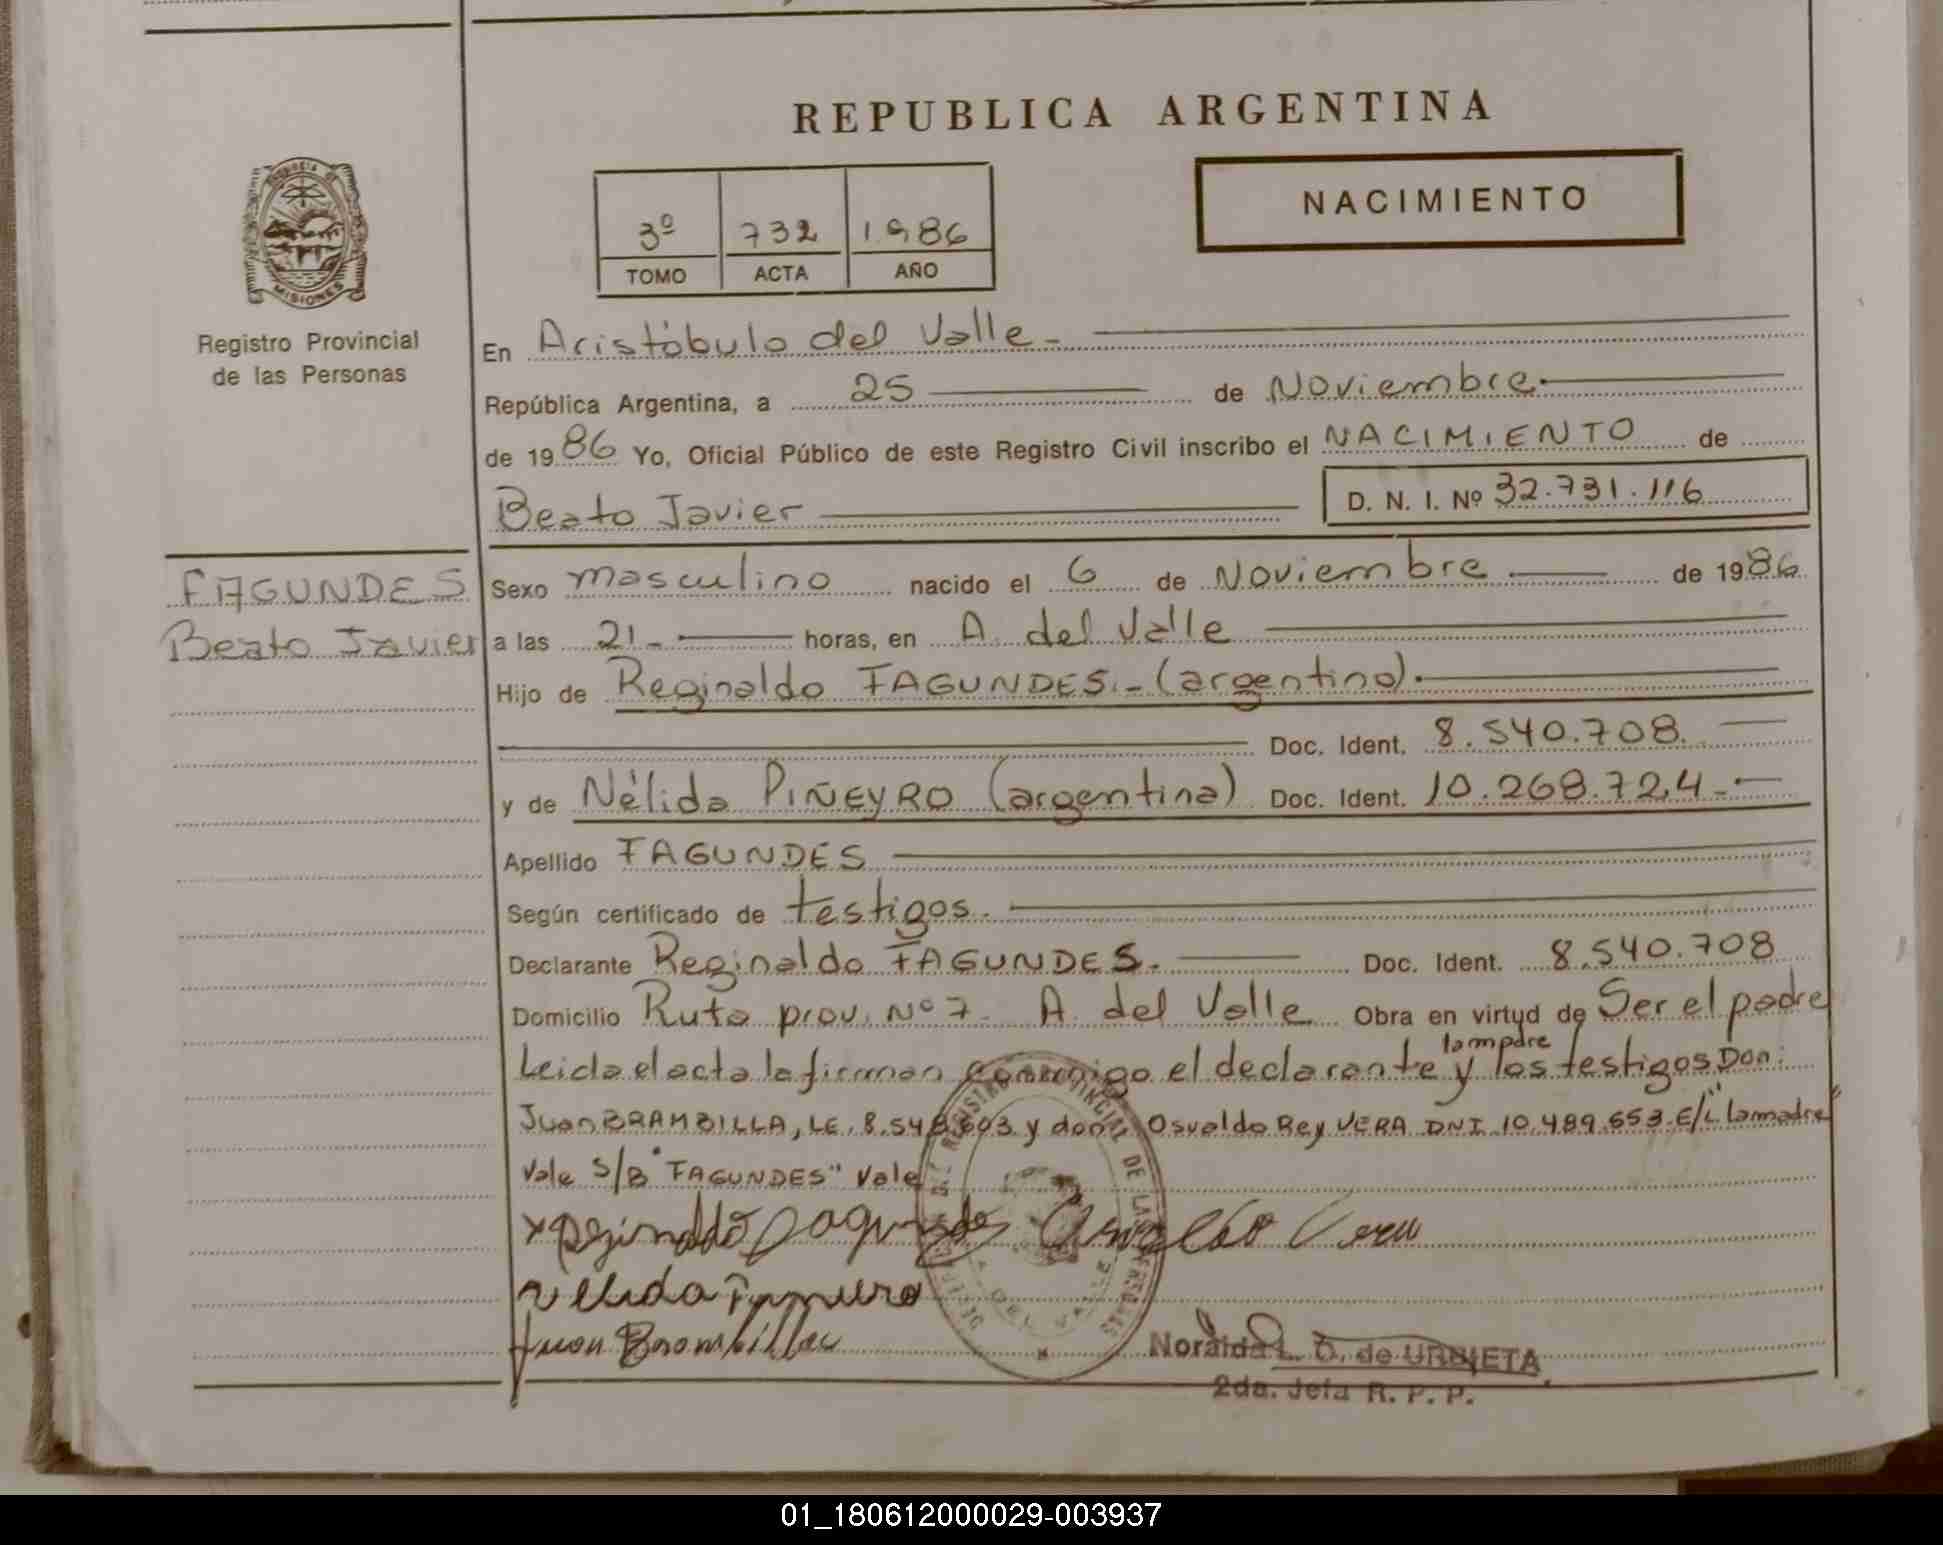 REPUBLICA ARGENTINA
NACIMIENTO
3º 732 1986
TOMO ACTA AÑO
PROVINCIA DE
MISIONES
Registro Provincial
de las Personas
En Aristóbulo del Valle.-
República Argentina, a 25 de Noviembre.
de 1986 Yo, Oficial Público de este Registro Civil inscribo el NACIMIENTO de
Beato Javier D. N. I. Nº 32.731.116
FAGUNDES
Beato Javier
Sexo masculino nacido el 6 de Noviembre de 1986
a las 21.- horas, en A. del Valle
Hijo de Reginaldo FAGUNDES.- (argentino).
Doc. Ident. 8.540.708.
y de Nélida PIÑEYRO (argentina) Doc. Ident. 10.268.724.-
Apellido FAGUNDES
Según certificado de testigos.
Declarante Reginaldo FAGUNDES. Doc. Ident. 8.540.708
Domicilio Ruta prov. Nº 7. A. del Valle Obra en virtud de Ser el padre
lampdre
Leida el acta la firman conmigo el declarante y los testigos Don:
Juan BRAMBILLA, LE. 8.548.603 y don Osvaldo Rey VERA DNI 10.489.653. E/L "la madre"
Vale S/B "FAGUNDES" Vale
Reginaldo Fagundes Osvaldo Vera
Nelida Pineyro
Juan Brambilla
REGISTRO PROVINCIAL DE LAS PERSONAS
Noraida L. D. de URBIETA
2da. Jefa R. P. P.
01_180612000029-003937